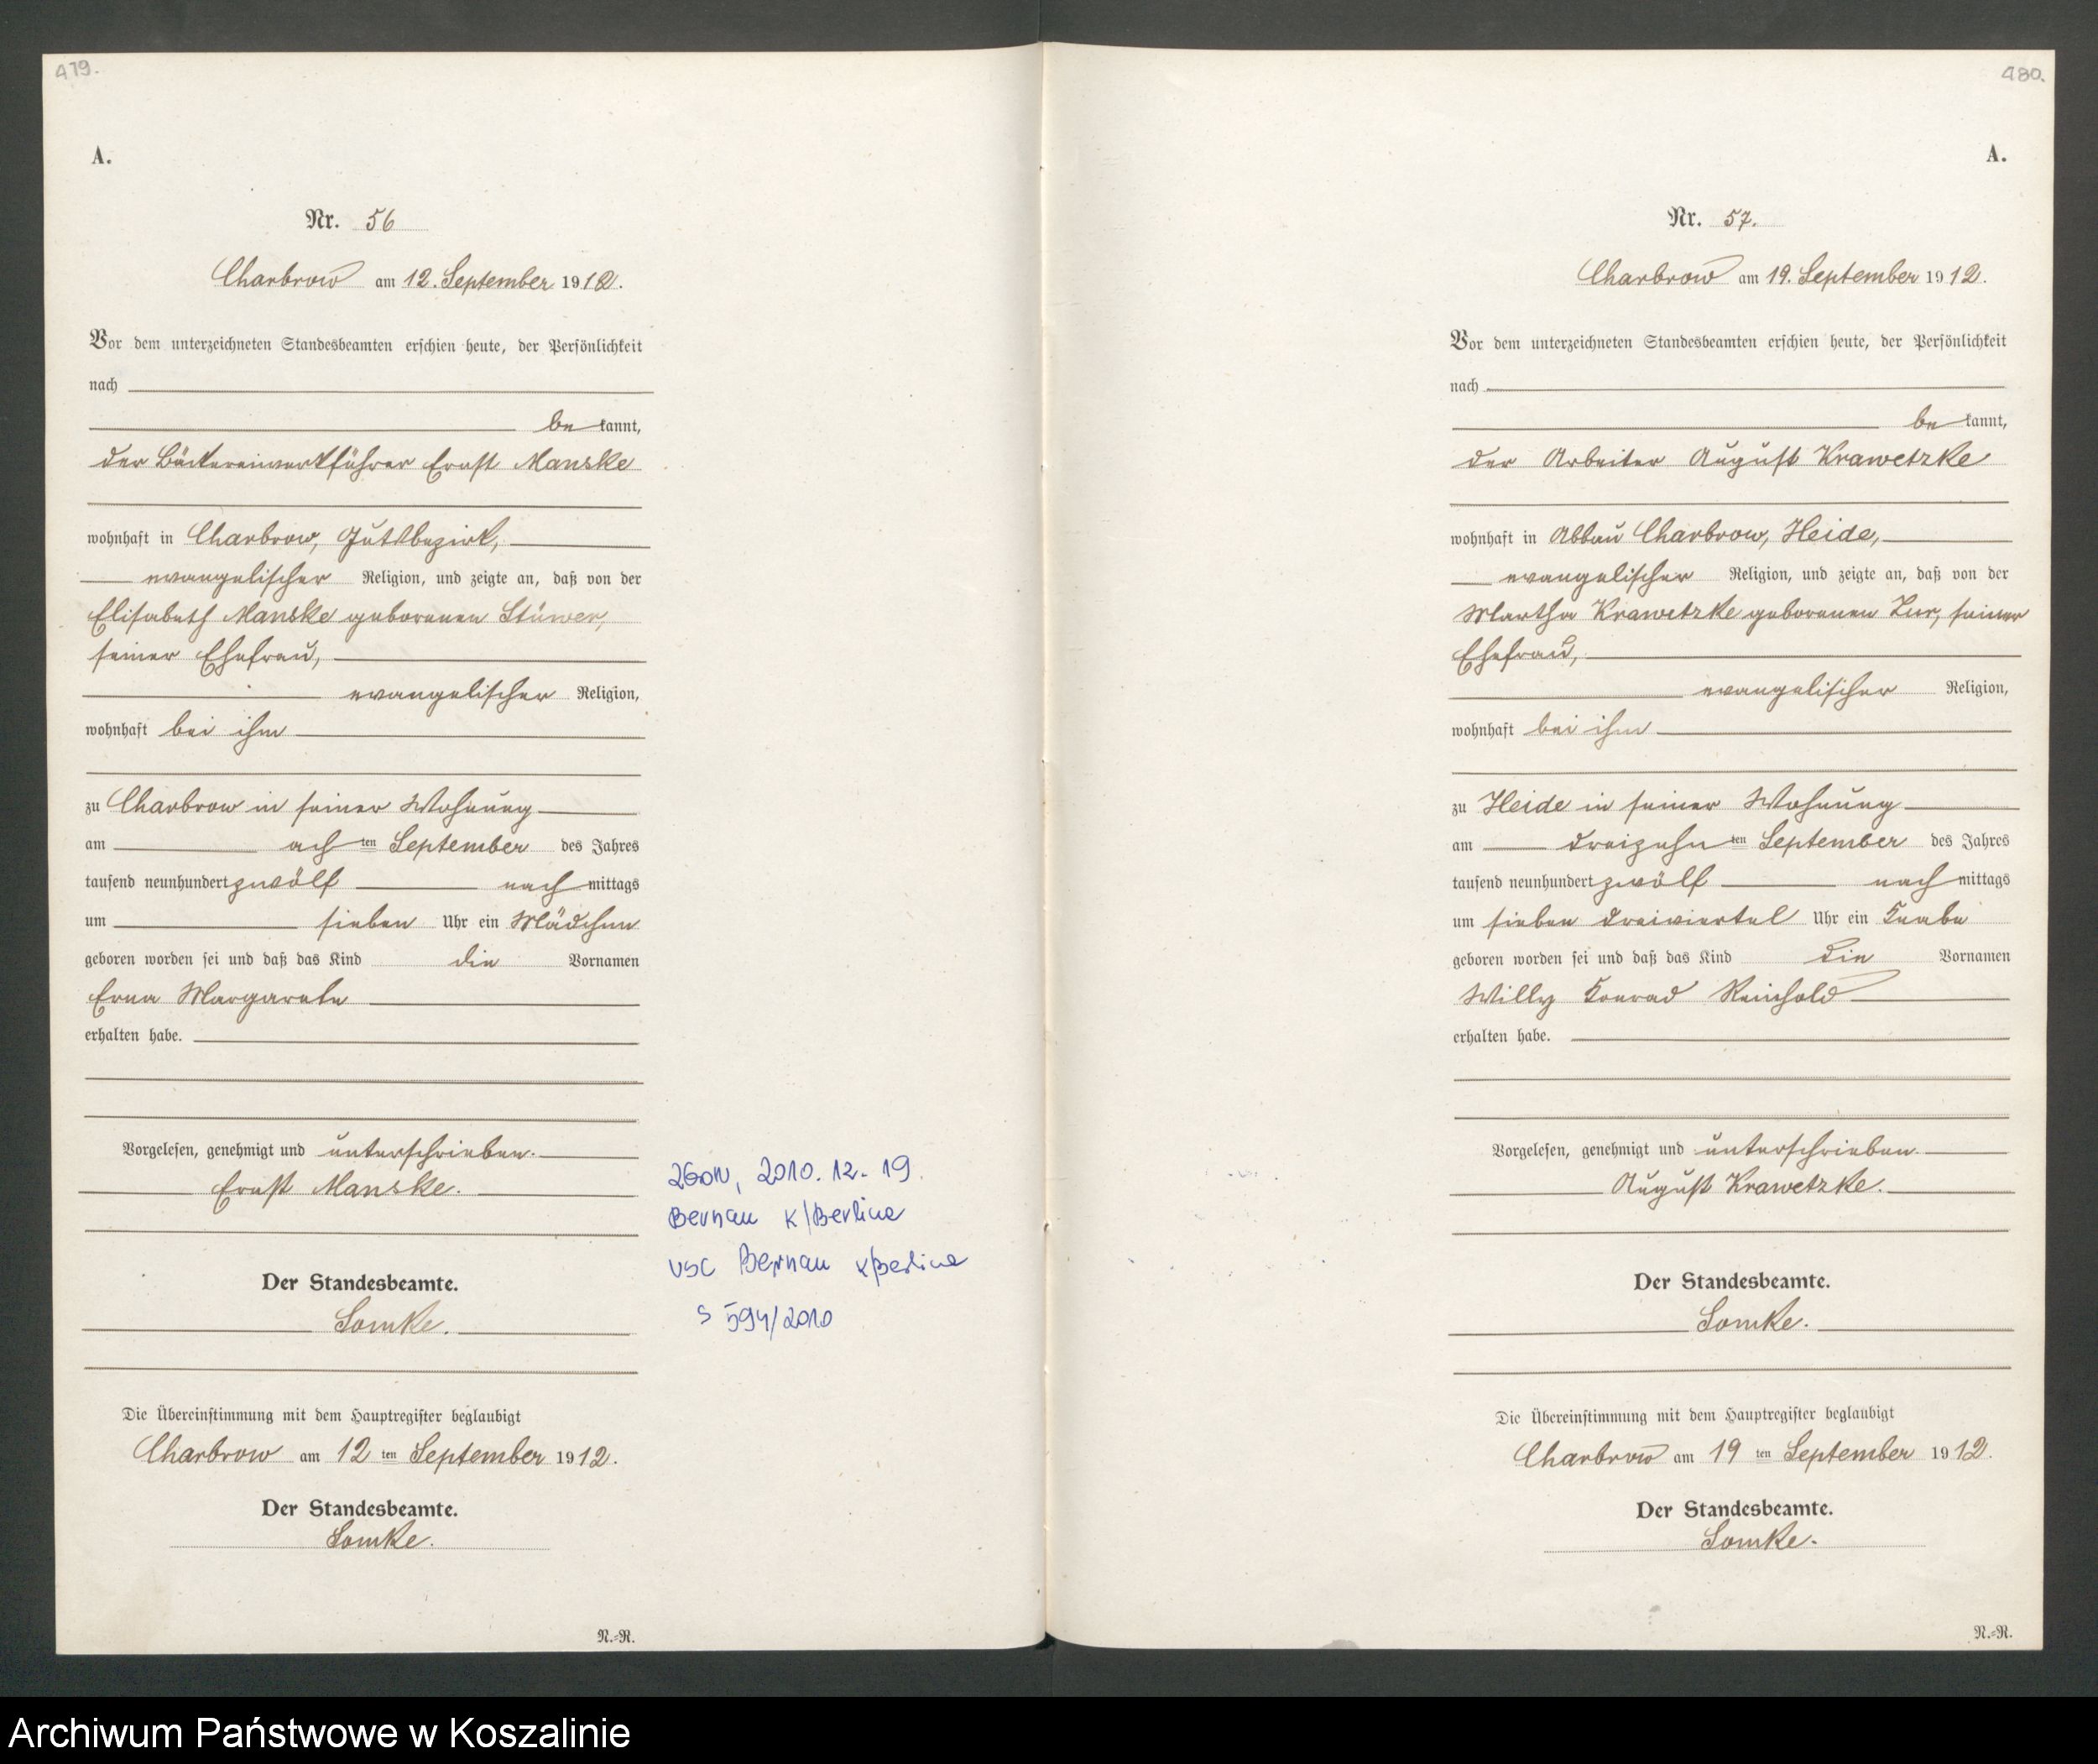 479.
A.
Nr. 56
Charbrow am 12. September 1912.
Vor dem unterzeichneten Standesbeamten erschien heute, der Persönlichkeit
nach
be kannt,
der Bäckereiwerkführer Ernst Manske
wohnhaft in Charbrow, Gutsbezirk,
evangelischer Religion, und zeigte an, daß von der
Elisabeth Manske geborenen Stüwer,
seiner Ehefrau,
evangelischer Religion,
wohnhaft bei ihm
zu Charbrow in seiner Wohnung
am ach ten September des Jahres
tausend neunhundert zwölf nach mittags
um sieben Uhr ein Mädchen
geboren worden sei und daß das Kind die Vornamen
Erna Margarete
erhalten habe.
Vorgelesen, genehmigt und unterschrieben.
Ernst Manske.
Der Standesbeamte.
Somke.
Die Übereinstimmung mit dem Hauptregister beglaubigt
Charbrow am 12 ten September 1912.
Der Standesbeamte.
Somke.
N.=R.
zgon, 2010. 12. 19.
Bernau k/Berlina
USC Bernau k/Berlina
S 594/2010
480.
A.
Nr. 57.
Charbrow am 19. September 1912.
Vor dem unterzeichneten Standesbeamten erschien heute, der Persönlichkeit
nach
be kannt,
der Arbeiter August Krawetzke
wohnhaft in Abbau Charbrow, Heide,
evangelischer Religion, und zeigte an, daß von der
Martha Krawetzke geborenen Zur, seiner
Ehefrau,
evangelischer Religion,
wohnhaft bei ihm
zu Heide in seiner Wohnung
am dreizehn ten September des Jahres
tausend neunhundert zwölf nach mittags
um sieben dreiviertel Uhr ein Knabe
geboren worden sei und daß das Kind die Vornamen
Willy Konrad Reinhold
erhalten habe.
Vorgelesen, genehmigt und unterschrieben.
August Krawetzke.
Der Standesbeamte.
Somke.
Die Übereinstimmung mit dem Hauptregister beglaubigt
Charbrow am 19 ten September 1912.
Der Standesbeamte.
Somke.
N.=R.
Archiwum Państwowe w Koszalinie